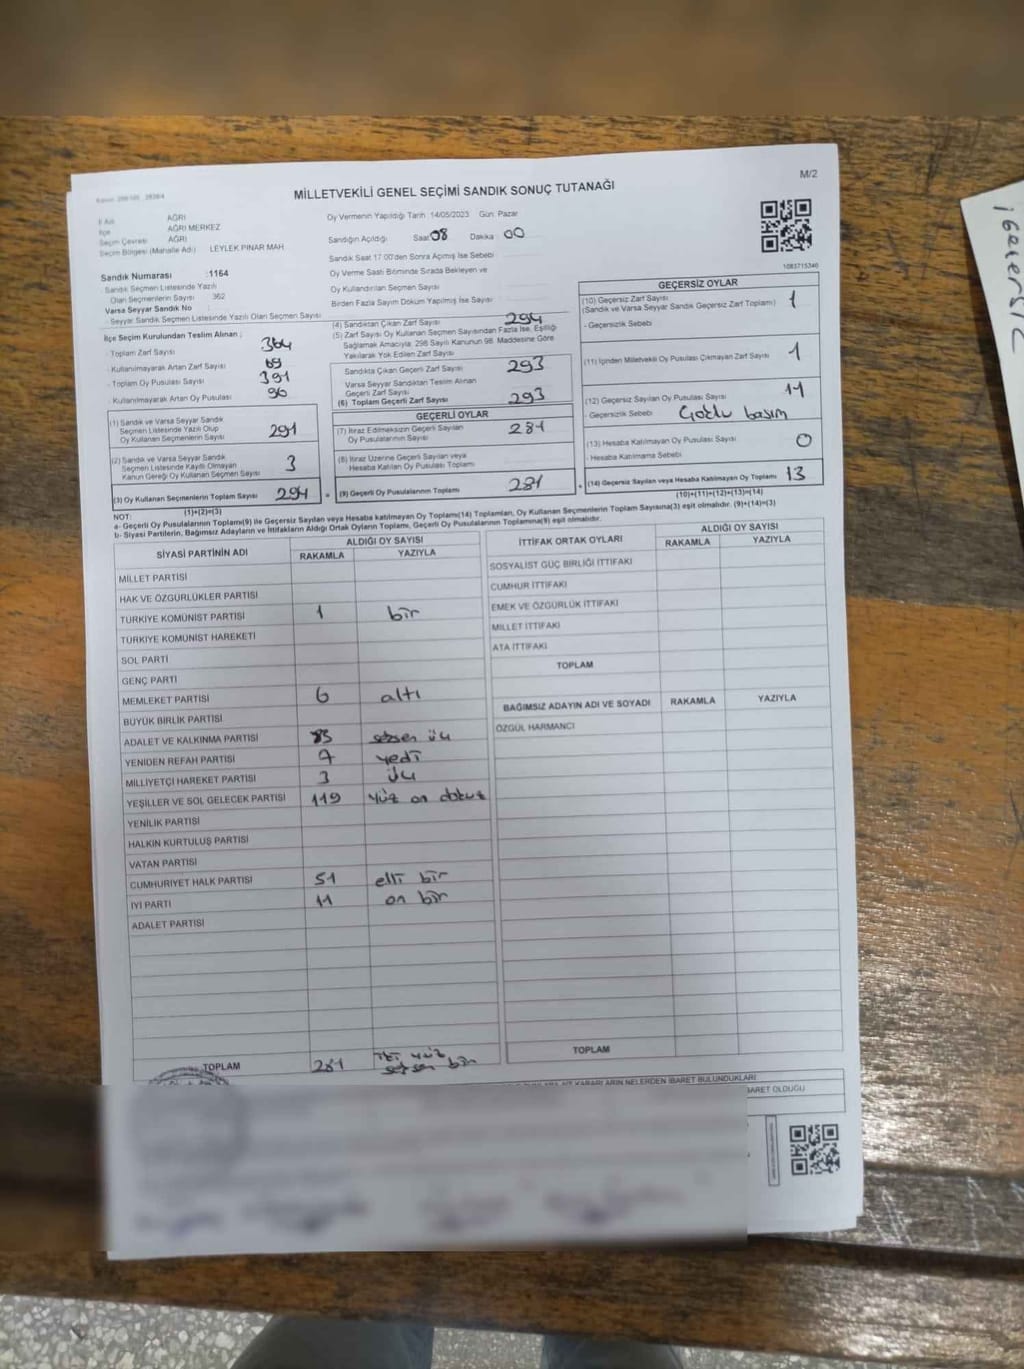 M/2
MİLLETVEKİLİ GENEL SEÇİMİ SANDIK SONUÇ TUTANAĞI
İl Adı AĞRI
İlçe AĞRI MERKEZ
Seçim Çevresi AĞRI
Seçim Bölgesi (Mahalle Adı) LEYLEK PINAR MAH.
Sandık Numarası :1164
Sandık Seçmen Listesinde Yazılı
Olan Seçmenlerin Sayısı 362
Varsa Seyyar Sandık No :
Seyyar Sandık Seçmen Listesinde Yazılı Olan Seçmen Sayısı
Oy Vermenin Yapıldığı Tarih 14/05/2023 Gün: Pazar
Sandığın Açıldığı Saat 08 Dakika 00
Sandık Saat 17.00'den Sonra Açımış İse Sebebi
Oy Verme Saati Bitiminde Sırada Bekleyen ve
Oy Kullandırılan Seçmen Sayısı
Birden Fazla Sayım Döküm Yapılmış İse Sayısı
1083715340
İlçe Seçim Kurulundan Teslim Alınan ;
- Toplam Zarf Sayısı 364
- Kullanılmayarak Artan Zarf Sayısı 69
- Toplam Oy Pusulası Sayısı 391
- Kullanılmayarak Artan Oy Pusulası 96
(1) Sandık ve Varsa Seyyar Sandık
Seçmen Listesinde Yazılı Olup
Oy Kullanan Seçmenlerin Sayısı 291
(2) Sandık ve Varsa Seyyar Sandık
Seçmen Listesinde Kayıtlı Olmayan
Kanun Gereği Oy Kullanan Seçmen Sayısı 3
(3) Oy Kullanan Seçmenlerin Toplam Sayısı 294
(1)+(2)=(3)
(4) Sandıktan Çıkan Zarf Sayısı 294
(5) Zarf Sayısı Oy Kullanan Seçmen Sayısından Fazla İse, Eşitliği
Sağlamak Amacıyla, 298 Sayılı Kanunun 98. Maddesine Göre
Yakılarak Yok Edilen Zarf Sayısı
Sandıkta Çıkan Geçerli Zarf Sayısı 293
Varsa Seyyar Sandıktan Teslim Alınan
Geçerli Zarf Sayısı
(6) Toplam Geçerli Zarf Sayısı 293
GEÇERLİ OYLAR
(7) İtiraz Edilmeksizin Geçerli Sayılan
Oy Pusulalarının Sayısı 281
(8) İtiraz Üzerine Geçerli Sayılan veya
Hesaba Katılan Oy Pusulası Toplamı
(9) Geçerli Oy Pusulalarının Toplamı 281
GEÇERSİZ OYLAR
(10) Geçersiz Zarf Sayısı 1
(Sandık ve Varsa Seyyar Sandık Geçersiz Zarf Toplamı)
- Geçersizlik Sebebi
(11) İçinden Milletvekili Oy Pusulası Çıkmayan Zarf Sayısı 1
(12) Geçersiz Sayılan Oy Pusulası Sayısı 11
- Geçersizlik Sebebi Çoklu basım
(13) Hesaba Katılmayan Oy Pusulası Sayısı 0
- Hesaba Katılmama Sebebi
(14) Geçersiz Sayılan veya Hesaba Katılmayan Oy Toplamı 13
(10)+(11)+(12)+(13)=(14)
NOT:
a- Geçerli Oy Pusulalarının Toplamı(9) ile Geçersiz Sayılan veya Hesaba katılmayan Oy Toplamı(14) Toplamları, Oy Kullanan Seçmenlerin Toplam Sayısına(3) eşit olmalıdır. (9)+(14)=(3)
b- Siyasi Partilerin, Bağımsız Adayların ve İttifakların Aldığı Ortak Oyların Toplamı, Geçerli Oy Pusulalarının Toplamına(9) eşit olmalıdır.
SİYASİ PARTİNİN ADI ALDIĞI OY SAYISI
RAKAMLA YAZIYLA
MİLLET PARTİSİ
HAK VE ÖZGÜRLÜKLER PARTİSİ
TÜRKİYE KOMÜNİST PARTİSİ 1 bir
TÜRKİYE KOMÜNİST HAREKETİ
SOL PARTİ
GENÇ PARTİ
MEMLEKET PARTİSİ 6 altı
BÜYÜK BİRLİK PARTİSİ
ADALET VE KALKINMA PARTİSİ 83 seksen üç
YENİDEN REFAH PARTİSİ 7 yedi
MİLLİYETÇİ HAREKET PARTİSİ 3 üç
YEŞİLLER VE SOL GELECEK PARTİSİ 119 yüz on dokuz
YENİLİK PARTİSİ
HALKIN KURTULUŞ PARTİSİ
VATAN PARTİSİ
CUMHURİYET HALK PARTİSİ 51 elli bir
İYİ PARTİ 11 on bir
ADALET PARTİSİ
TOPLAM 281 iki yüz seksen bir
İTTİFAK ORTAK OYLARI ALDIĞI OY SAYISI
RAKAMLA YAZIYLA
SOSYALİST GÜÇ BİRLİĞİ İTTİFAKI
CUMHUR İTTİFAKI
EMEK VE ÖZGÜRLÜK İTTİFAKI
MİLLET İTTİFAKI
ATA İTTİFAKI
TOPLAM
BAĞIMSIZ ADAYIN ADI VE SOYADI RAKAMLA YAZIYLA
ÖZGÜL HARMANCI
TOPLAM
KARARLARIN NELERDEN İBARET BULUNDUKLARI
İBARET OLDUĞU